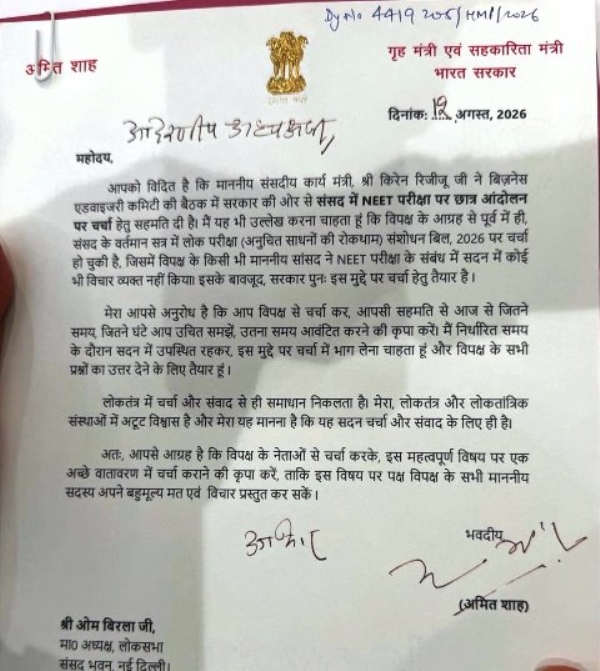 Dy No 4419 205/HMP/2026
अमित शाह
गृह मंत्री एवं सहकारिता मंत्री
भारत सरकार
दिनांक: 19 अगस्त, 2026
आदरणीय अध्यक्ष जी,
महोदय,
आपको विदित है कि माननीय संसदीय कार्य मंत्री, श्री किरेन रिजीजू जी ने बिज़नेस
एडवाइजरी कमिटी की बैठक में सरकार की ओर से संसद में NEET परीक्षा पर छात्र आंदोलन
पर चर्चा हेतु सहमति दी है। मैं यह भी उल्लेख करना चाहता हूं कि विपक्ष के आग्रह से पूर्व में ही,
संसद के वर्तमान सत्र में लोक परीक्षा (अनुचित साधनों की रोकथाम) संशोधन बिल, 2026 पर चर्चा
हो चुकी है, जिसमें विपक्ष के किसी भी माननीय सांसद ने NEET परीक्षा के संबंध में सदन में कोई
भी विचार व्यक्त नहीं किया। इसके बावजूद, सरकार पुनः इस मुद्दे पर चर्चा हेतु तैयार है।
मेरा आपसे अनुरोध है कि आप विपक्ष से चर्चा कर, आपसी सहमति से आज से जितने
समय, जितने घंटे आप उचित समझें, उतना समय आवंटित करने की कृपा करें। मैं निर्धारित समय
के दौरान सदन में उपस्थित रहकर, इस मुद्दे पर चर्चा में भाग लेना चाहता हूं और विपक्ष के सभी
प्रश्नों का उत्तर देने के लिए तैयार हूं।
लोकतंत्र में चर्चा और संवाद से ही समाधान निकलता है। मेरा, लोकतंत्र और लोकतांत्रिक
संस्थाओं में अटूट विश्वास है और मेरा यह मानना है कि यह सदन चर्चा और संवाद के लिए ही है।
अतः, आपसे आग्रह है कि विपक्ष के नेताओं से चर्चा करके, इस महत्वपूर्ण विषय पर एक
अच्छे वातावरण में चर्चा कराने की कृपा करें, ताकि इस विषय पर पक्ष विपक्ष के सभी माननीय
सदस्य अपने बहुमूल्य मत एवं विचार प्रस्तुत कर सकें।
भवदीय
(अमित शाह)
श्री ओम बिरला जी,
मा0 अध्यक्ष, लोकसभा
संसद भवन, नई दिल्ली।